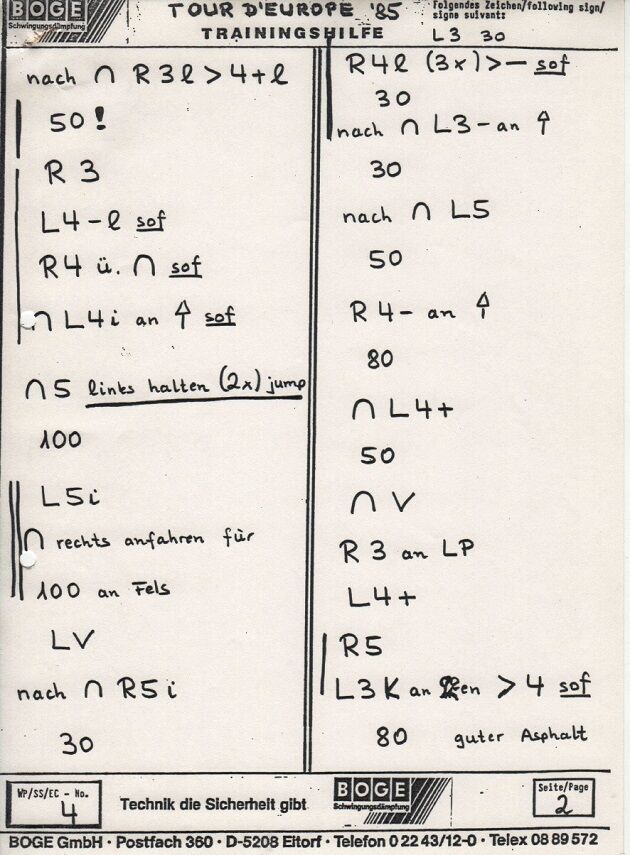 BOGE
Schwingungsdämpfung
TOUR D'EUROPE '85
TRAININGSHILFE
Folgendes Zeichen/following sign/
signe suivant:
L3 30
nach ∩ R3l > 4+l
50!
R 3
L4-l sof
R4 ü. ∩ sof
∩ L4i an ⇧ sof
∩5 links halten (2x) jump
100
L5i
∩ rechts anfahren für
100 an Fels
LV
nach ∩ R5i
30
R4l (3x) > - sof
30
nach ∩ L3- an ⇧
30
nach ∩ L5
50
R4- an ⇧
80
∩ L4+
50
∩ V
R3 an LP
L4+
R5
L3K an > 4 sof
80 guter Asphalt
WP/SS/EC - No.
4
Technik die Sicherheit gibt
BOGE
Schwingungsdämpfung
Seite/Page
2
BOGE GmbH · Postfach 360 · D-5208 Eitorf · Telefon 0 22 43/12-0 · Telex 08 89 572